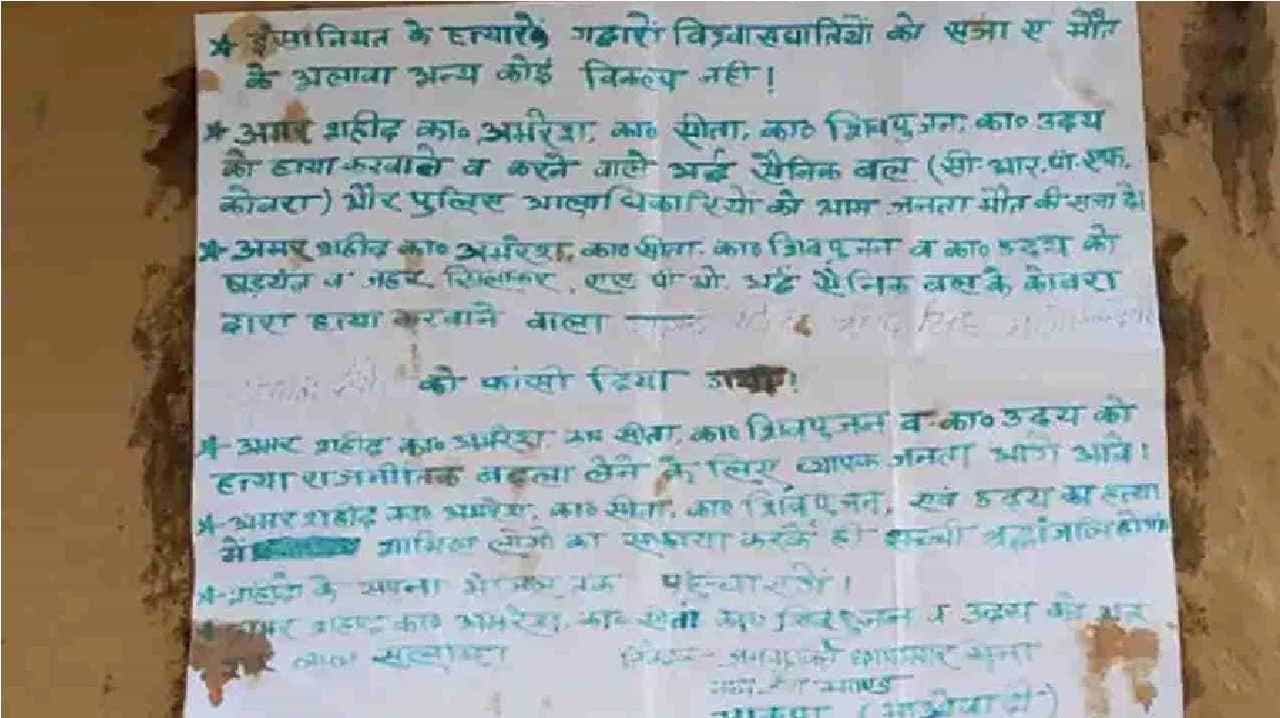 * इंसानियत के हत्यारें गद्दारों विश्वासघातियों को सजा ए मौत
के अलावा अन्य कोई विकल्प नहीं!
* अमर शहीद का० अमरेश, का० सीता, का० शिवपुजन, का० उदय
की हत्या करवाने व करने वाले अर्द्ध सैनिक बल (सी.आर.पी.एफ.
कोबरा) और पुलिस आलाधिकारियों को आम जनता मौत की सजा दें।
* अमर शहीद का० अमरेश, का० सीता, का० शिवपुजन व का० उदय को
षड्यंत्र व जहर खिलाकर, एस पी ओ. अर्द्ध सैनिक बल के कोबरा
द्वारा हत्या करवाने वाला —
को फांसी दिया गया!
* अमर शहीद का० अमरेश, का० सीता, का० शिवपुजन व का० उदय की
हत्या राजनीतिक बदला लेने के लिए व्यापक जनता आगे आवें।
* अमर शहीद का० अमरेश, का० सीता, का० शिवपुजन, एवं उदय का हत्या
में शामिल लोगों का सफाया करकें ही सच्ची श्रद्धांजलि होगी
* शहीदों के सपना मंजिल तक पहुंचाएगें।
* अमर शहीद का० अमरेश, का० सीता का० शिवपुजन व उदय को
लाल सलाम
छापामार सेना
भाकपा (माओवादी)